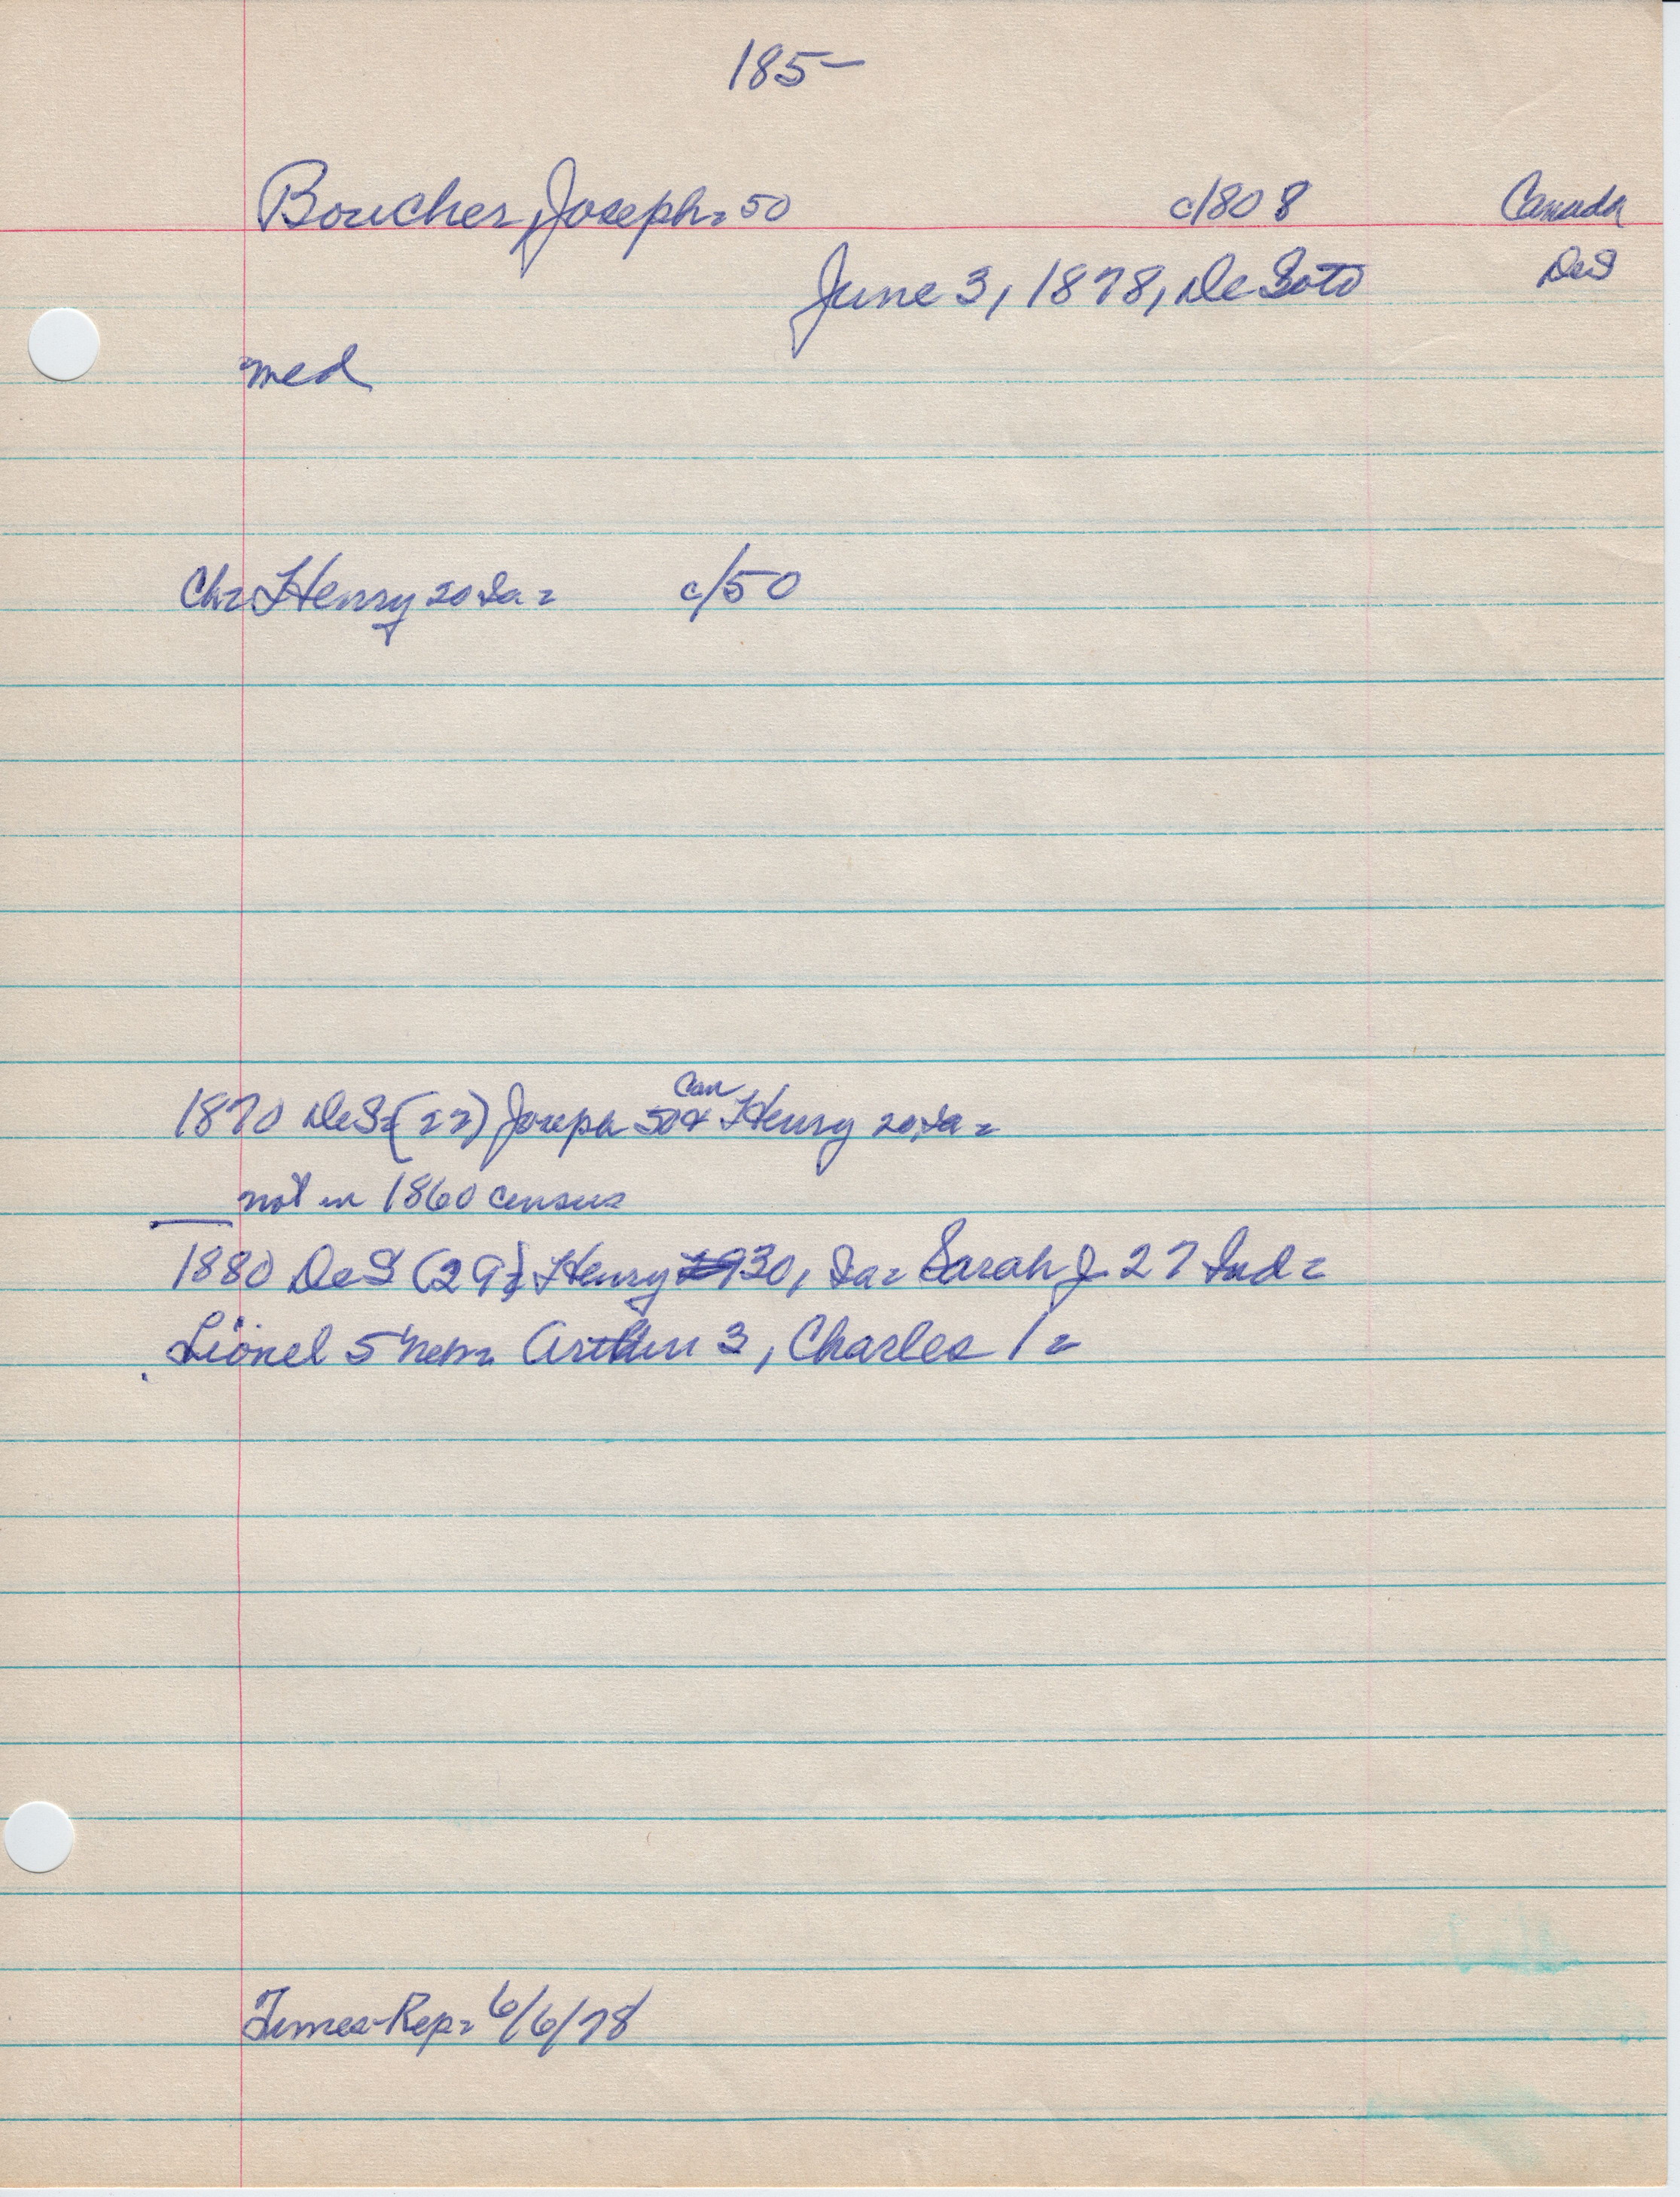 185-
Boucher, Joseph= 50 c/808 Canada
June 3, 1878, De Soto DeS
med
Ch= Henry 20 Ia = c/50
Can
1870 DeS= (22) Joseph 50 & Henry 20, Ia =
not in 1860 census
1880 DeS (29) Henry 30, Ia= Sarah J. 27 Ind =
Lionel 5 Neb= Arthur 3, Charles 1 =
Times-Rep= 6/6/78